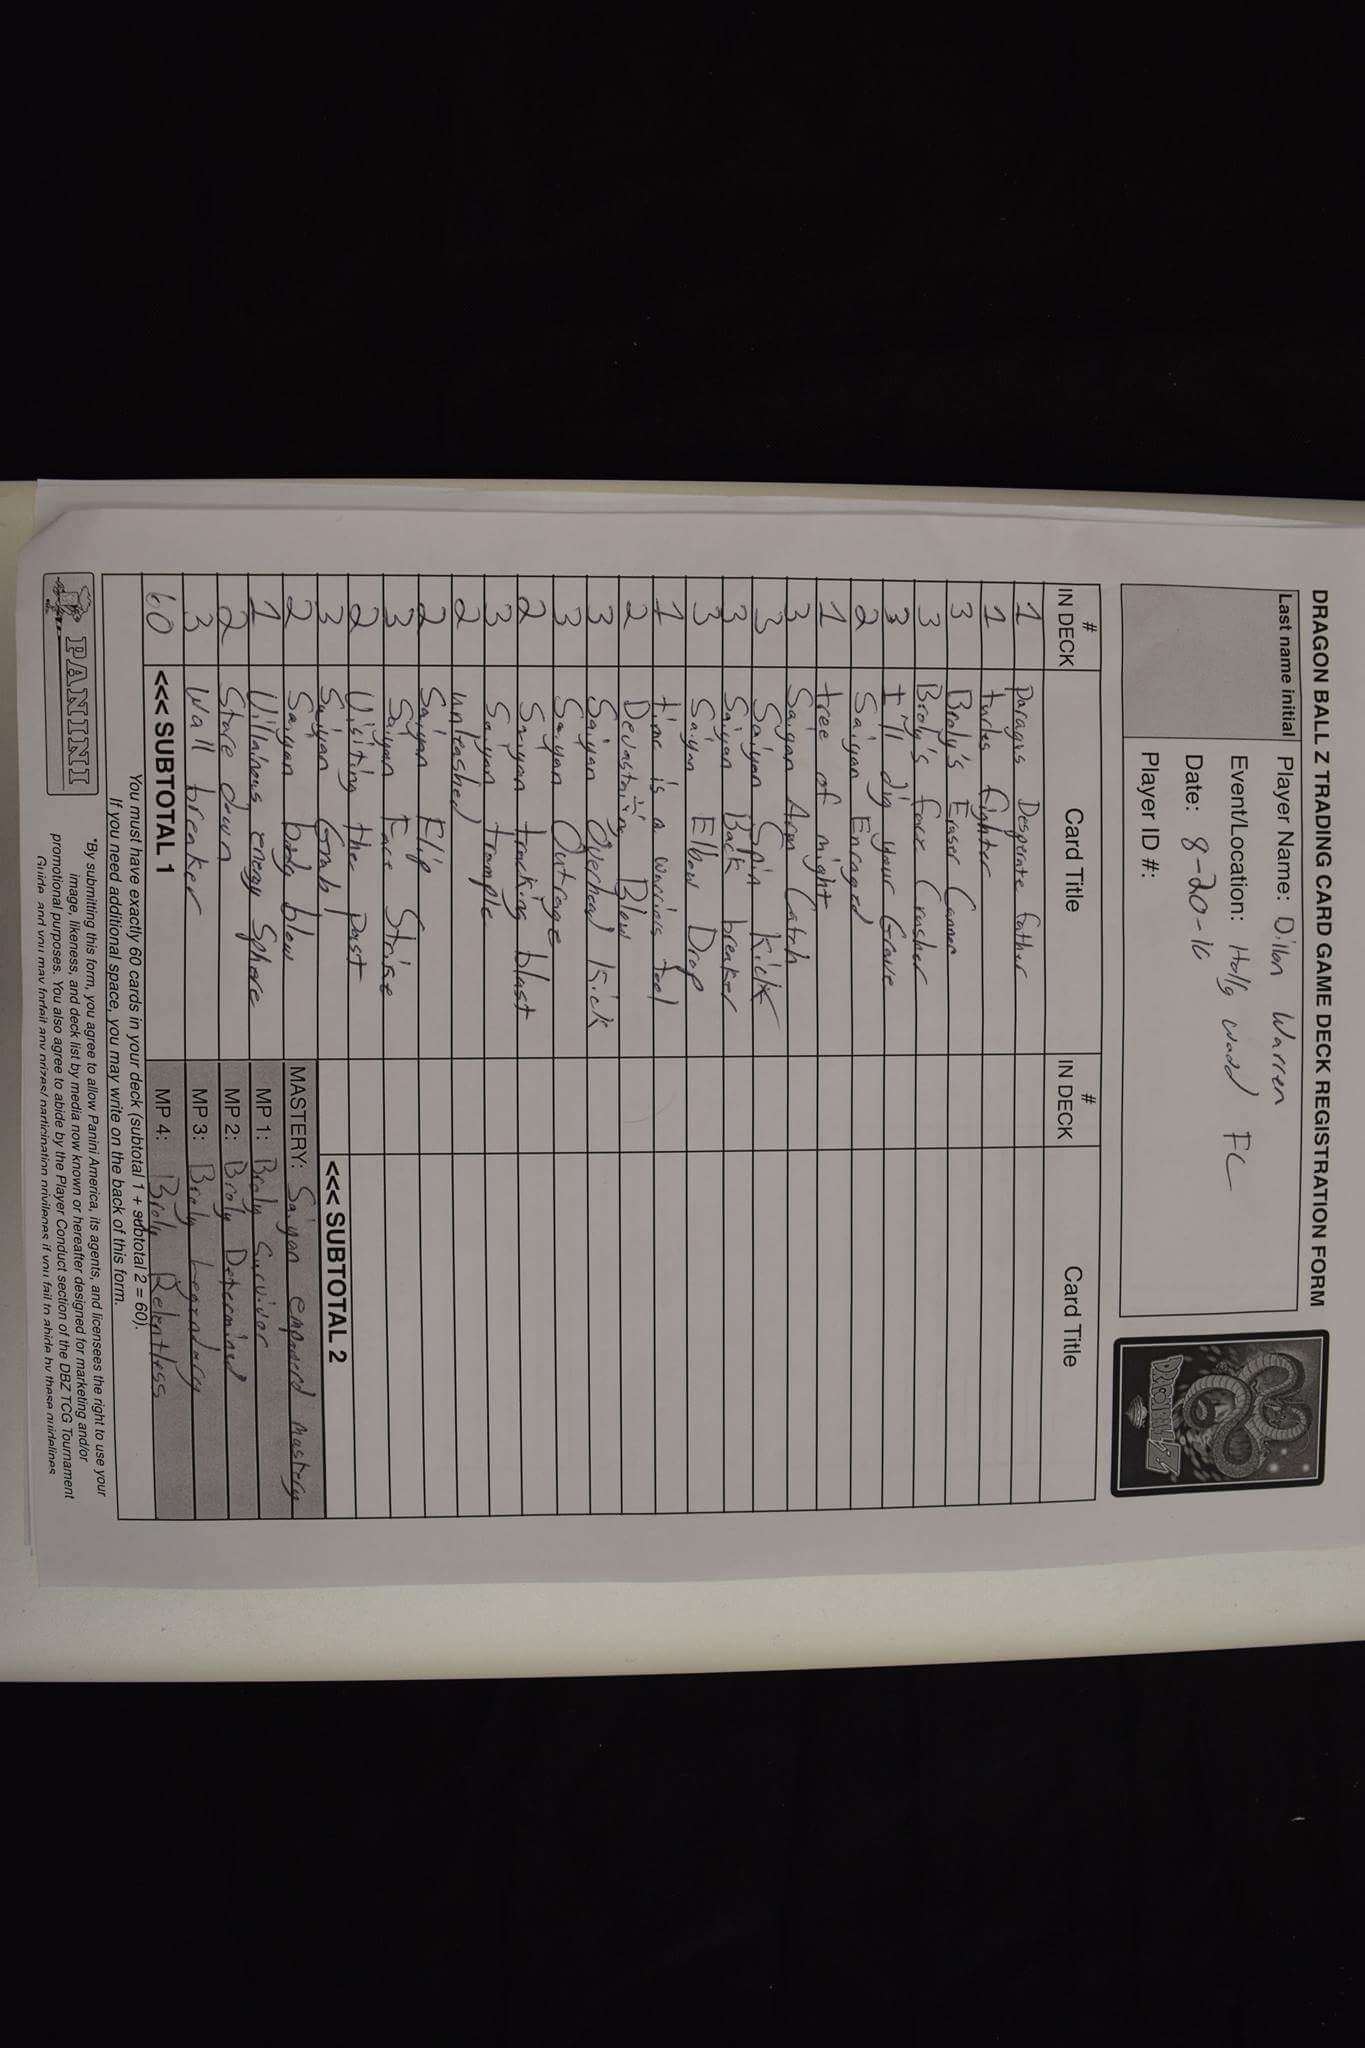 DRAGON BALL Z TRADING CARD GAME DECK REGISTRATION FORM
Last name initial
Player Name: Dillon Warren
Event/Location: Hollywood FC
Date: 8-20-16
Player ID #:
DRAGON BALL Z
# IN DECK Card Title # IN DECK Card Title
1 Paragus Desperate father
1 turles fighter
3 Broly's Eraser Cannon
3 Broly's face Crusher
3 I'll dig your Grave
2 Saiyan Enraged
1 tree of might
3 Saiyan Arm Catch
3 Saiyan Spin Kick
3 Saiyan Back breaker
3 Saiyan Elbow Drop
1 time is a warriors tool
2 Devastating Blow
3 Saiyan Overhead Kick
3 Saiyan Outrage
2 Saiyan tracking blast
3 Saiyan trample
2 unleashed
2 Saiyan Flip
3 Saiyan Face Strike
2 Visiting the past
3 Saiyan Grab
2 Saiyan body blow
1 Villainous energy Sphere
2 Stare down
3 Wall breaker
60 <<< SUBTOTAL 1
<<< SUBTOTAL 2
MASTERY: Saiyan empowered mastery
MP 1: Broly Survivor
MP 2: Broly Determined
MP 3: Broly Legendary
MP 4: Broly Relentless
You must have exactly 60 cards in your deck (subtotal 1 + subtotal 2 = 60).
If you need additional space, you may write on the back of this form.
PANINI
*By submitting this form, you agree to allow Panini America, its agents, and licensees the right to use your
image, likeness, and deck list by media now known or hereafter designed for marketing and/or
promotional purposes. You also agree to abide by the Player Conduct section of the DBZ TCG Tournament
Guide, and you may forfeit any prizes/participation privileges if you fail to abide by these guidelines